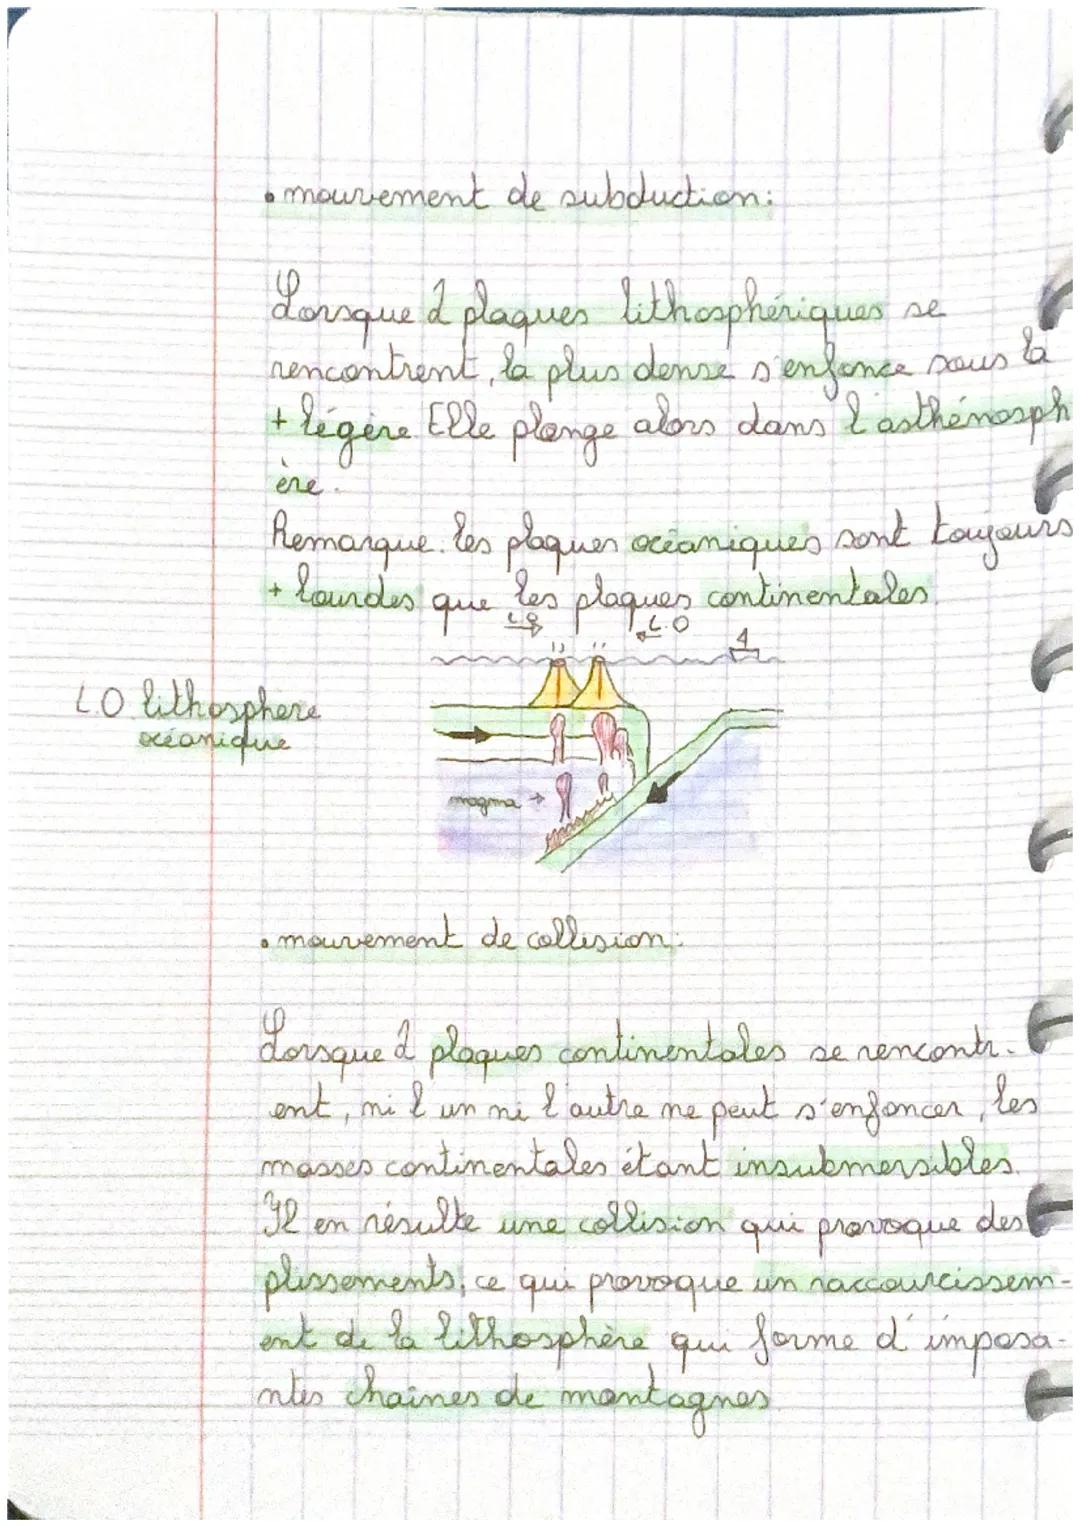 • mouvement de subduction:
Lorsque 2 plaques lithosphériques se
rencontrent, la plus dense s'enfonce sous la
+ légère Elle plonge alors dans l'asthénosph
ère.
Remarque. les plaques océaniques sont toujours
+ lourdes que les plaques continentales.
L.O
L.O
4
L.O lithosphère
océanique
magma →
• mouvement de collision:
Lorsque 2 plaques continentales se rencontr-
ent, ni l'un ni l'autre ne peut s'enfoncer, les
masses continentales étant insubmersibles.
Il en résulte une collision qui provoque des
plissements, ce qui provoque un raccourcissem-
ent de la lithosphère qui forme d'imposa-
ntes chaînes de montagnes